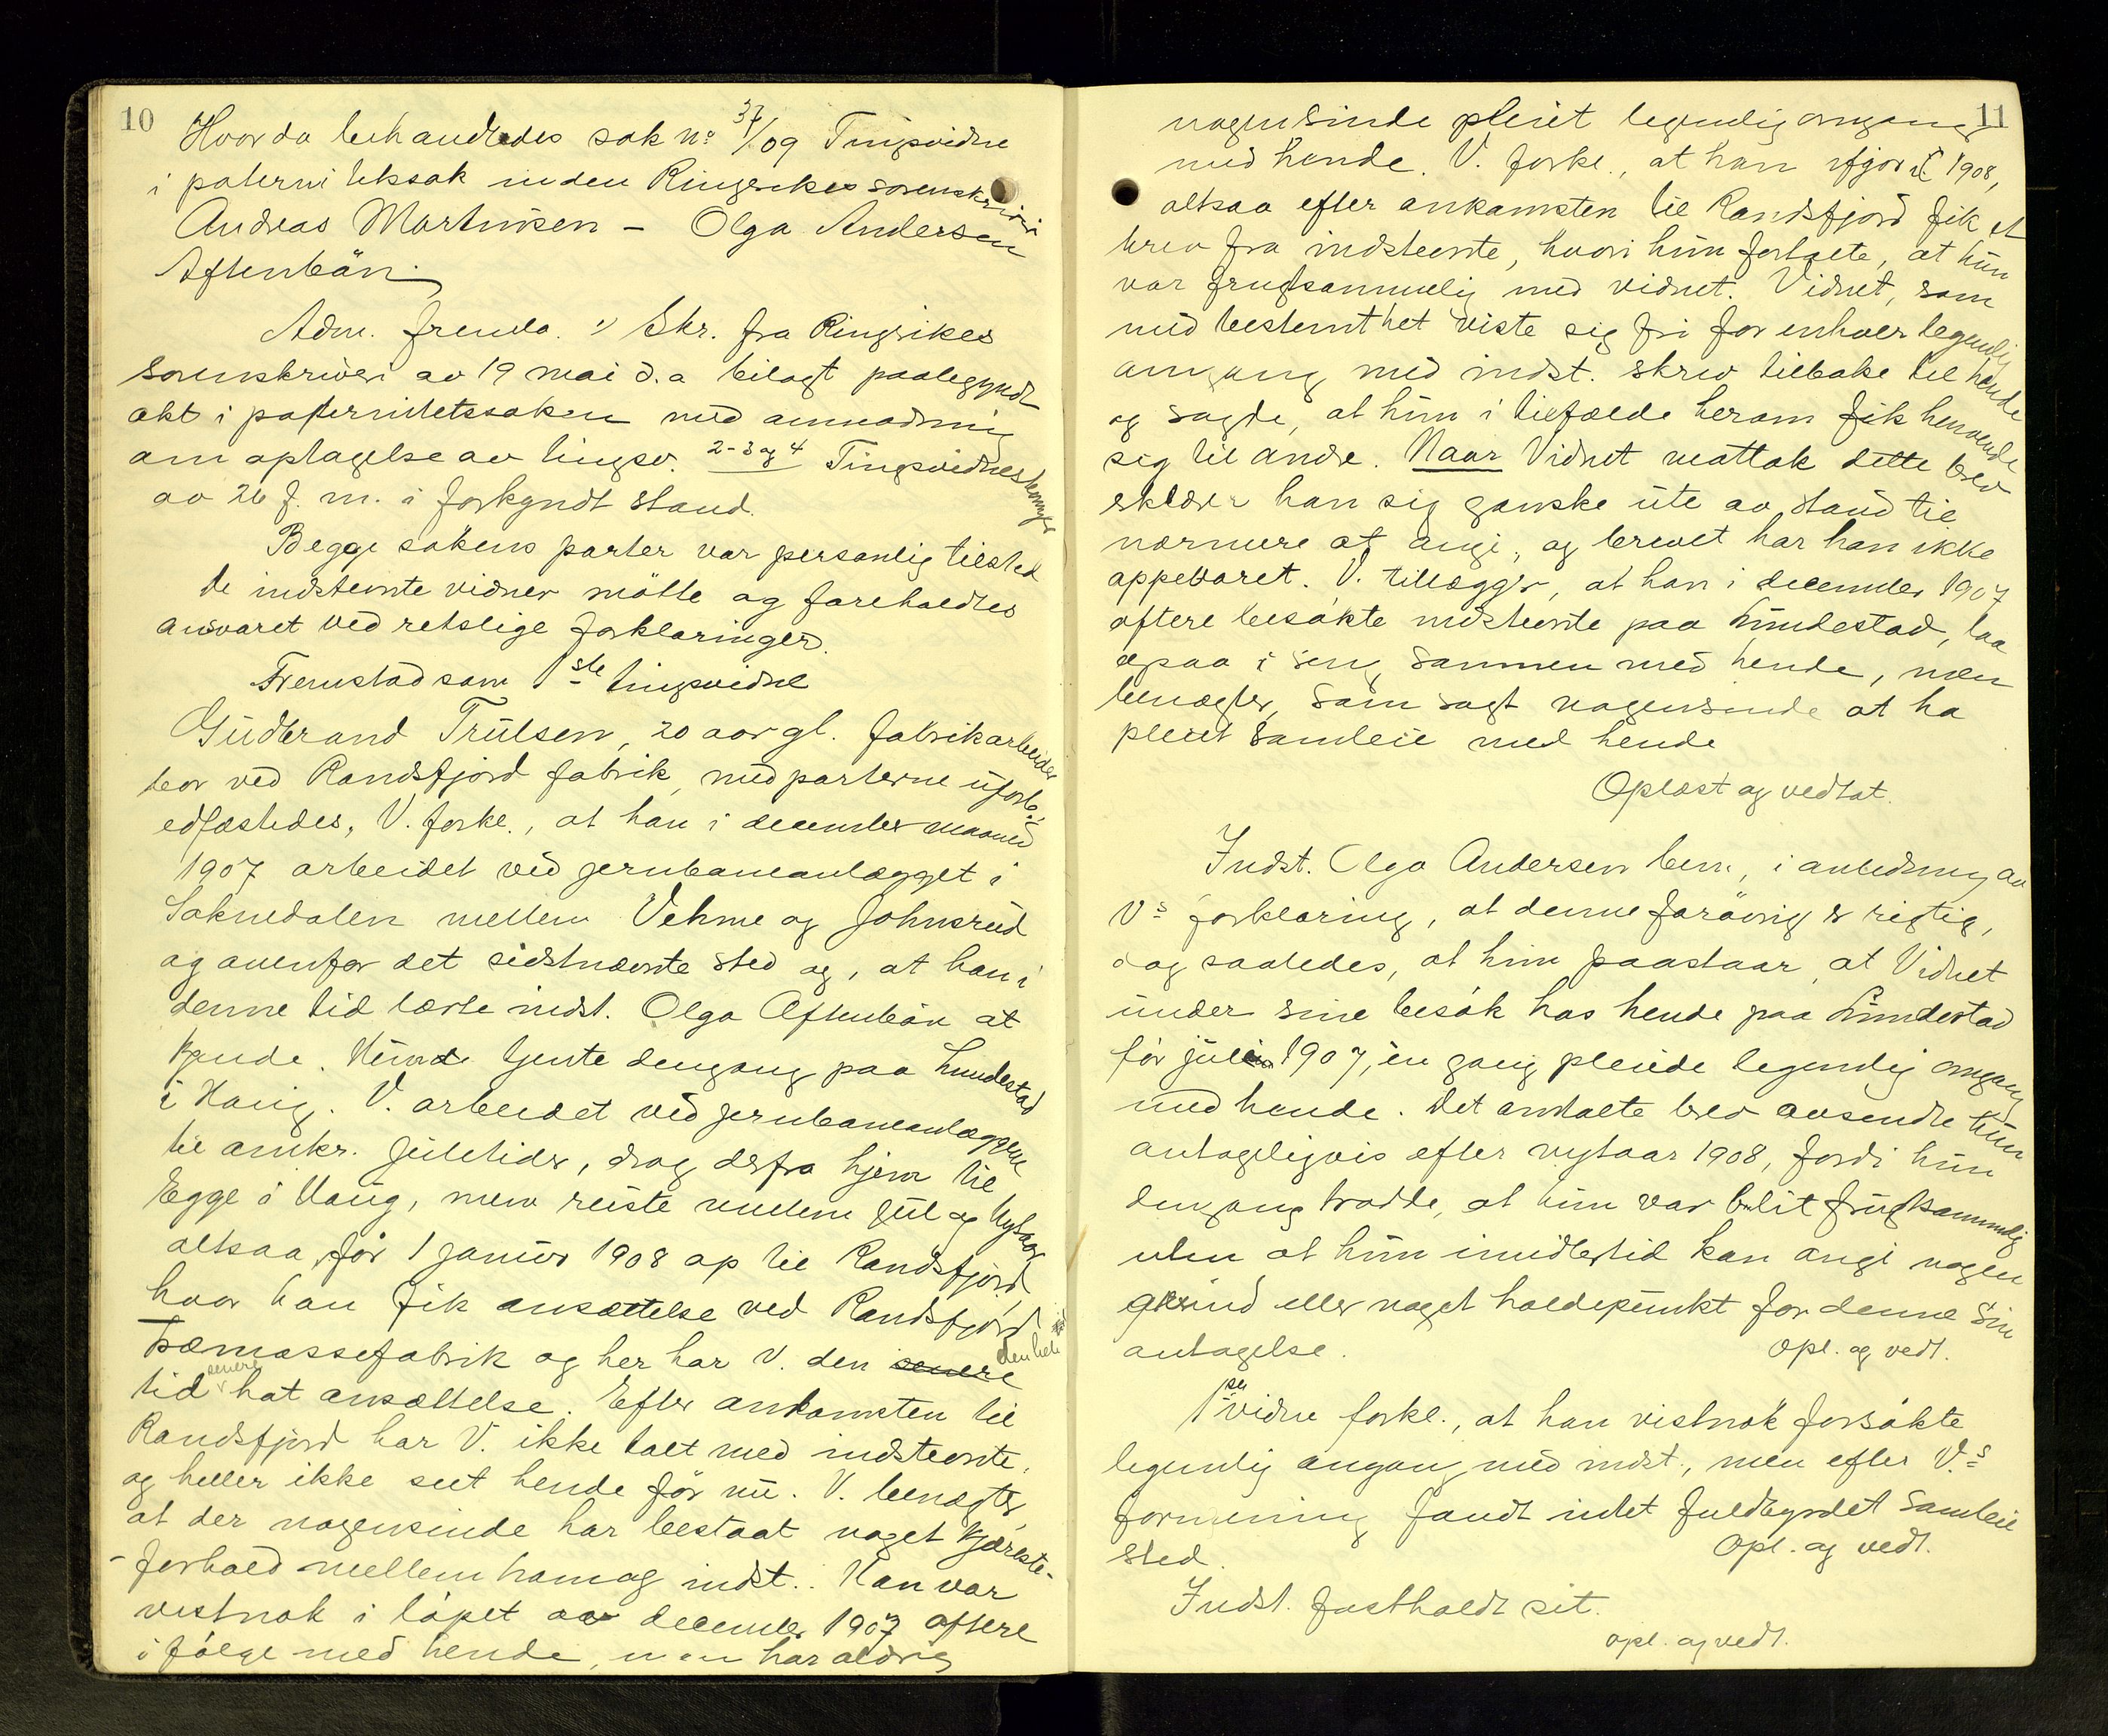 10
Hvorda behandledes sak No 37/09 Tingsvidne
i paternitetssak inden Ringerikes sorenskriveri
Andreas Martinsen – Olga Andersen
Aftenbön.
Adm. fremla. 1) Skr. fra Ringrikes
sorenskriveri av 19 mai d.a bilagt paabegyndt
akt i paternitetssaken med anmodning
om optagelse av tingsv. 2-3 og 4 Tingsvidnestevninger
av 26 f. m. i forkyndt stand.
Begge sakens parter var personlig tilsted
de indstevnte vidner mötte og foreholdtes
ansvaret ved retslige forklaringer.
Fremstod som 1ste tingsvidne
Gudbrand Trulsen, 20 aar gl. fabrikarbeider
bor ved Randsfjord fabrik, med parterne uforb.,
edfæstedes, V. forkl., at han i december maaned
1907 arbeidet ved jernbaneanlægget i
Soknedalen mellem Vehme og Johnsrud
og ovenfor det sidstnævnte sted og, at han i
denne tid lærte indst. Olga Aftenbön at
kjende. Hun tjente dengang paa Lundestad
i Haug. V. arbeidet ved jernbaneanlægget
til omkr. juletider, drog derfra hjem til
Egge i Haug, men reiste mellem jul og Nytaar
altsaa för 1 januar 1908 op til Randsfjord,
hvor han fik ansættelse ved Randsfjord
Træmassefabrik og her har V. den senere den hele
tid senere hat ansættelse. Efter ankomsten til
Randsfjord har V. ikke talt med indstevnte,
og heller ikke seet hende för nu. V. benegter,
at der nogensinde har bestaat noget kjæreste-
-forhold mellem ham og indst.. Han var
vistnok i löpet av december 1907 oftere
i følge med hende, men har aldrig
11
nogensinde pleiet legemlig omgang
med hende. V. forkl., at han ifjor 1908,
altsaa efter ankomsten til Randsfjord fik et
brev fra indstevnte, hvori hun fortalte, at hun
var frugtsommelig med vidnet. Vidnet, som
med bestemthet viste sig fri for enhver legemlig
omgang med indst. skrev tilbake til hende
og sagde, at hun i tilfælde herom fik henvende
sig til andre. Naar Vidnet mottok dette brev
erklærer han sig ganske ute av stand til
nærmere at angi, og brevet har han ikke
oppebaret. V. tillægger, at han i december 1907
oftere besökte indstevnte paa Lundestad, laa
ogsaa i seng sammen med hende, men
benegter, som sagt nogensinde at ha
pleiet samleie med hende
Oplæst og vedtat.
Indst. Olga Andersen bem., i anledning av
Vs forklaring, at denne forövrig er rigtig,
dog saaledes, at hun paastaar, at Vidnet
under sine besök hos hende paa Lundestad
för jul 1907, én gang pleiede legemlig omgang
med hende. Det omtalte brev avsendte hun
antageligvis efter nytaar 1908, fordi hun
dengang trodde, at hun var blit frugtsommelig
uten at hun imidlertid kan angi nogen
grund eller noget holdepunkt for denne sin
antagelse.
Opl. og vedt.
1ste vidne forkl., at han vistnok forsökte
legemlig omgang med indst., men efter V.s
formening fandt intet fuldbyrdet samleie
sted.
Opl. og vedt.
Indst. fastholdt sit.
opl. og vedt.